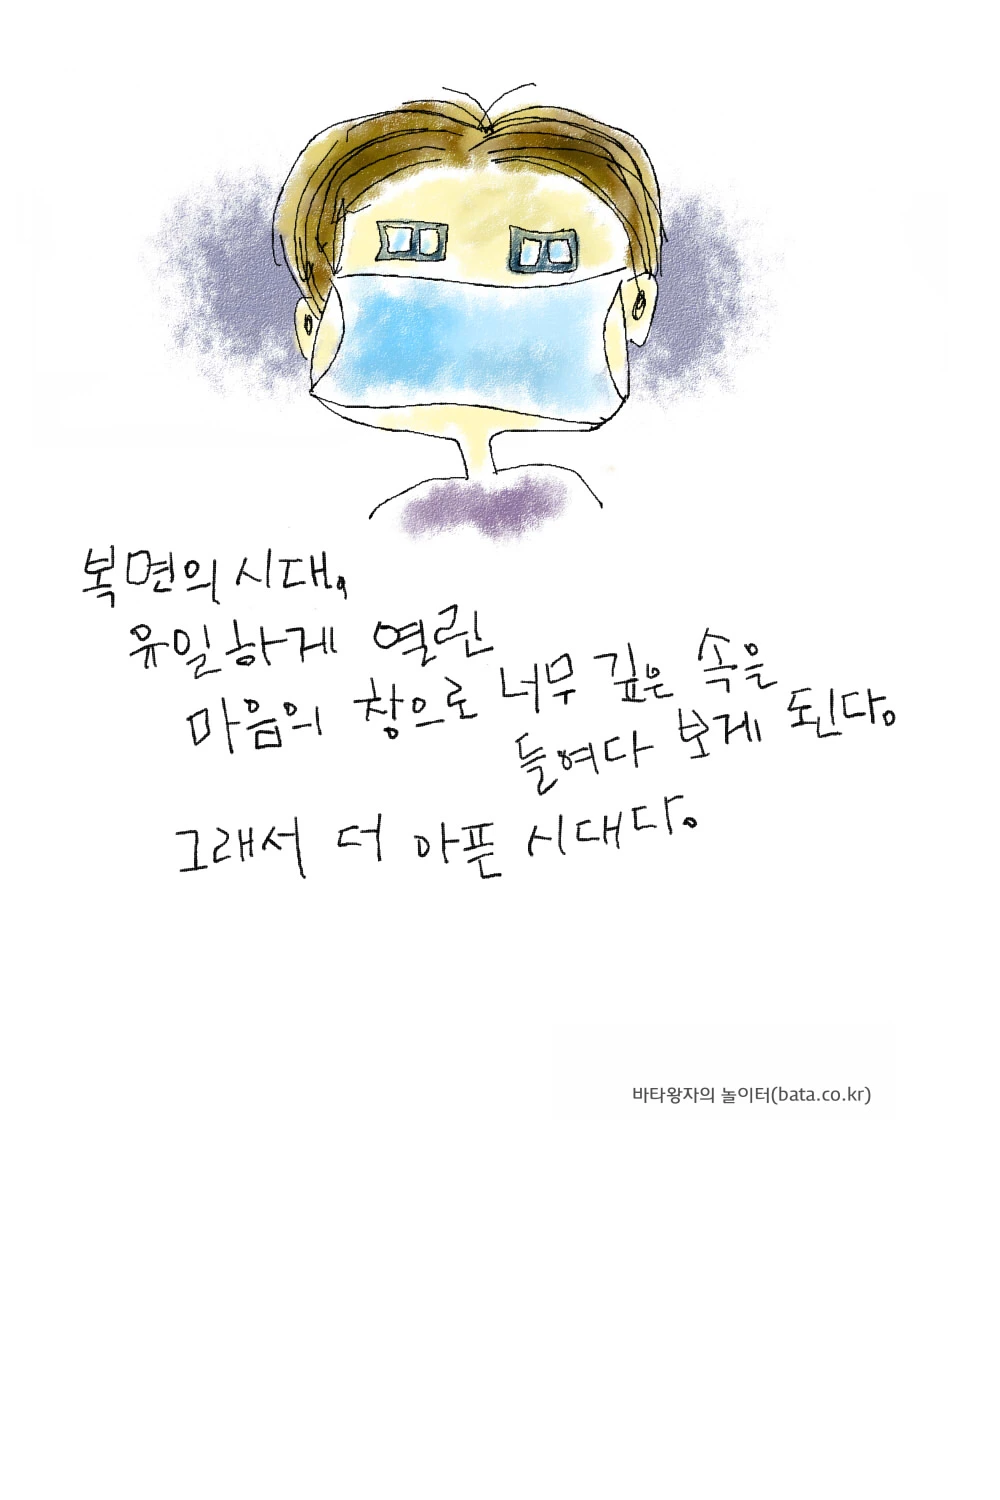 복면의 시대,
유일하게 열린
마음의 창으로 너무 깊은 속을
들여다 보게 된다.
그래서 더 아픈 시대다.
바타왕자의 놀이터(bata.co.kr)